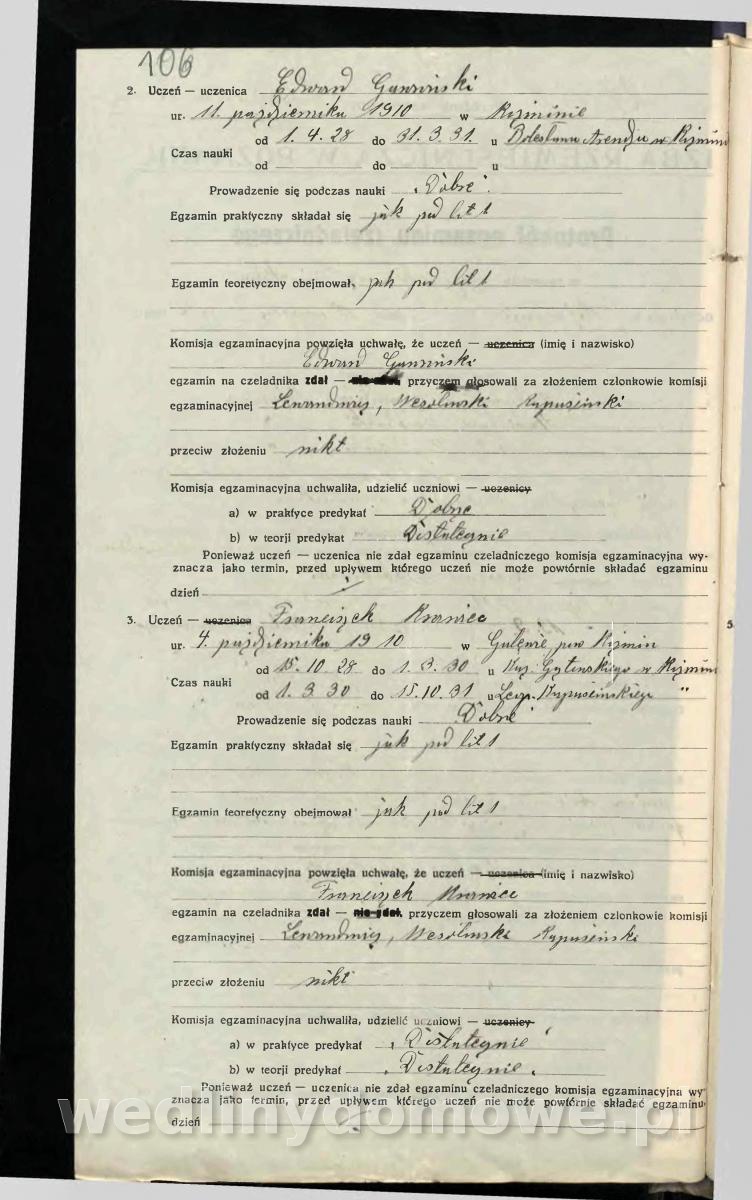 106
2. Uczeń — uczenica Edward
ur. 11. października 1910 w
od 1. 4. 28 do 31. 3. 31. u w
Czas nauki
od do u
Prowadzenie się podczas nauki „Dobre".
Egzamin praktyczny składał się jak pod lit 1
Egzamin teoretyczny obejmował jak pod lit 1
Komisja egzaminacyjna powzięła uchwałę, że uczeń — uczenica (imię i nazwisko)
Edward
egzamin na czeladnika zdał — nie zdał, przyczem głosowali za złożeniem członkowie komisji
egzaminacyjnej
przeciw złożeniu nikt
Komisja egzaminacyjna uchwaliła, udzielić uczniowi — uczenicy
a) w praktyce predykat Dobrze
b) w teorji predykat Dostatecznie
Ponieważ uczeń — uczenica nie zdał egzaminu czeladniczego komisja egzaminacyjna wy-
znacza jako termin, przed upływem którego uczeń nie może powtórnie składać egzaminu
dzień
3. Uczeń — uczenica Franciszek
ur. 4. października 1910 w
od 15. 10. 28 do 1. 3. 30 u w
Czas nauki
od 1. 3. 30 do 15. 10. 31 u "
Prowadzenie się podczas nauki „Dobre"
Egzamin praktyczny składał się jak pod lit 1
Egzamin teoretyczny obejmował jak pod lit 1
Komisja egzaminacyjna powzięła uchwałę, że uczeń — uczenica (imię i nazwisko)
Franciszek
egzamin na czeladnika zdał — nie zdał, przyczem głosowali za złożeniem członkowie komisji
egzaminacyjnej
przeciw złożeniu nikt
Komisja egzaminacyjna uchwaliła, udzielić uczniowi — uczenicy
a) w praktyce predykat „Dostatecznie"
b) w teorji predykat „Dostatecznie".
Ponieważ uczeń — uczenica nie zdał egzaminu czeladniczego komisja egzaminacyjna wy-
znacza jako termin, przed upływem którego uczeń nie może powtórnie składać egzaminu
dzień
wedlinydomowe.pl